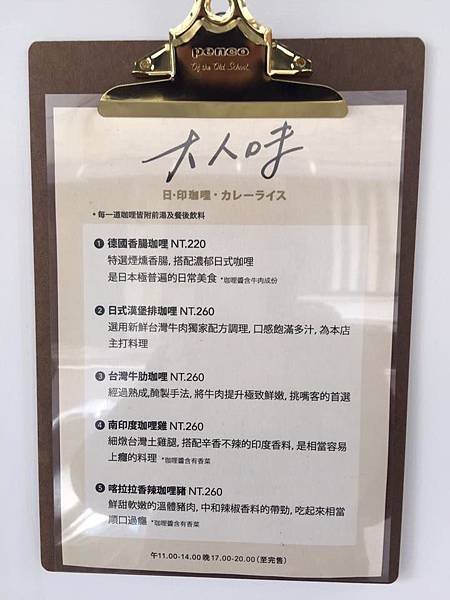 penco
Of the Old School
大人味
日·印咖哩·カレーライス
•每一道咖哩皆附前湯及餐後飲料
1 德國香腸咖哩 NT.220
特選煙燻香腸, 搭配濃郁日式咖哩
是日本極普遍的日常美食 *咖哩醬含牛肉成份
2 日式漢堡排咖哩 NT.260
選用新鮮台灣牛肉獨家配方調理, 口感飽滿多汁, 為本店
主打料理
3 台灣牛肋咖哩 NT.260
經過熟成,醃製手法, 將牛肉提升極致鮮嫩, 挑嘴客的首選
4 南印度咖哩雞 NT.260
細燉台灣土雞腿, 搭配辛香不辣的印度香料, 是相當容易
上癮的料理 *咖哩醬含有香菜
5 喀拉拉香辣咖哩豬 NT.260
鮮甜軟嫩的溫體豬肉, 中和辣椒香料的帶勁, 吃起來相當
順口過癮 *咖哩醬含有香菜
午11.00-14.00 晚17.00-20.00 (至完售)